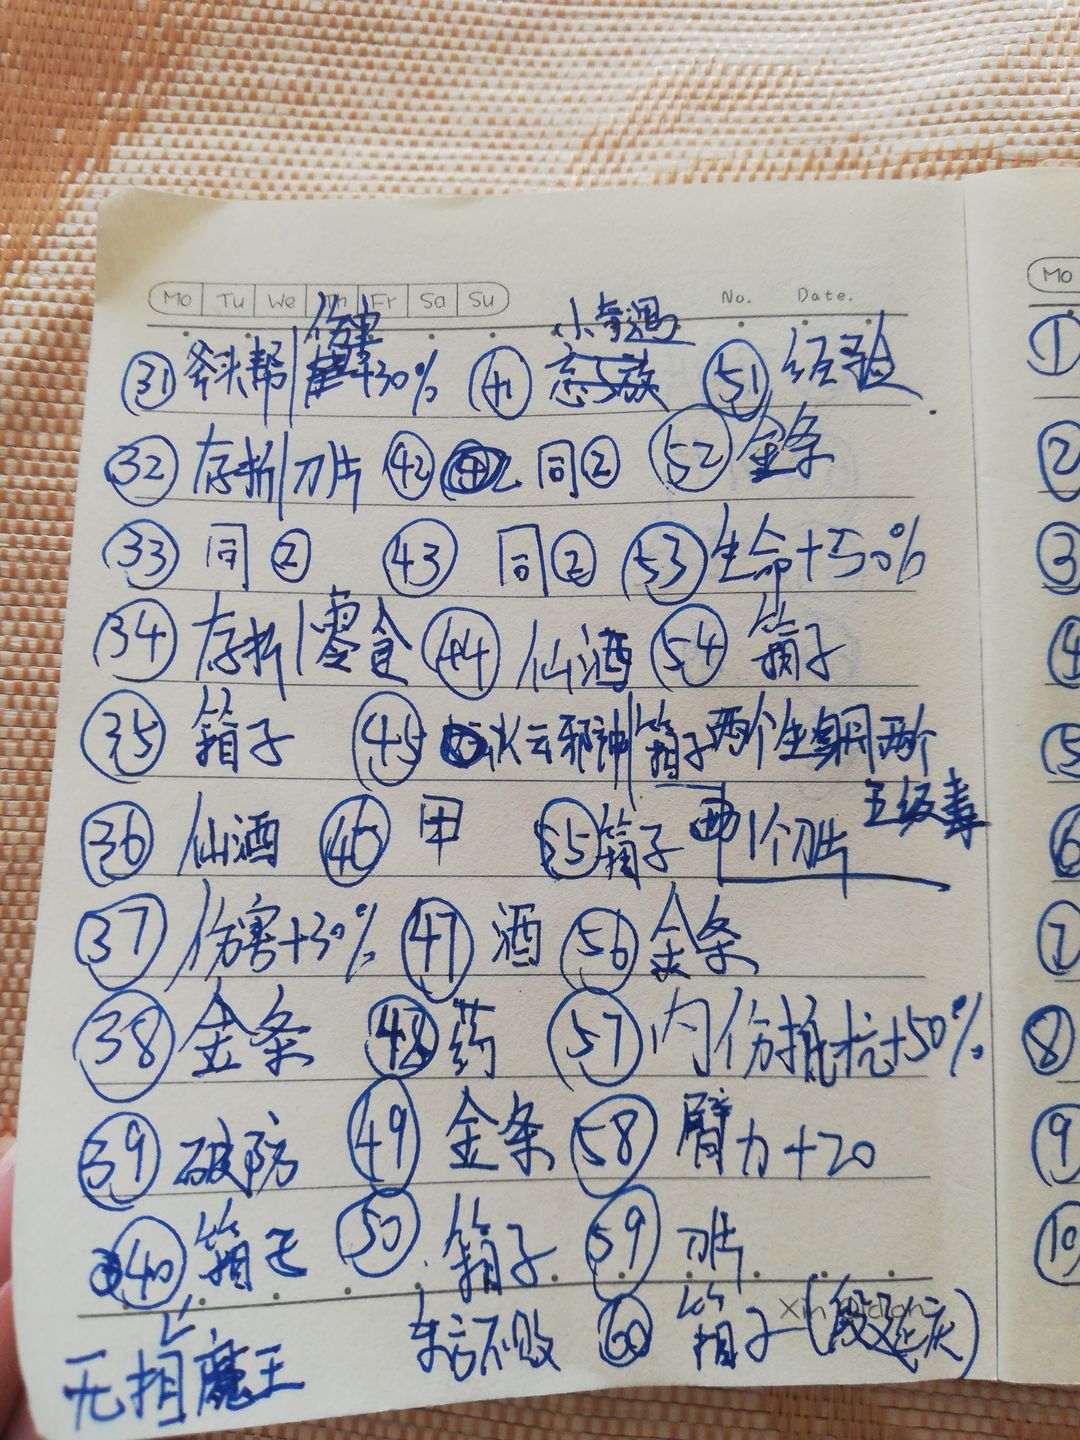 Mo Tu We Th Fr Sa Su No. Date.
伤害 小奇遇
㉛ 斧头帮|+30% ㊶ 忘5族 51 经验
㉜ 存折|刀片 ㊷ 同② 52 金条
㉝ 同② ㊸ 同② 53 生命+50%
㉞ 存折|零食 ㊹ 仙酒 54 箱子
㉟ 箱子 ㊺ 火云邪神|箱子两个生 两个
五级毒
㊱ 仙酒 ㊻ 甲 55 箱子 1个刀片
㊲ 伤害+30% ㊼ 酒 56 金条
㊳ 金条 ㊽ 药 57 内伤抵抗+50%
㊴ 破防 ㊾ 金条 58 臂力+20
㊵ 箱子 ㊿ 箱子 59 刀片
无相魔王 东方不败 60 箱子(段延庆)
Mo
①
②
③
④
⑤
⑥
⑦
⑧
⑨
⑩